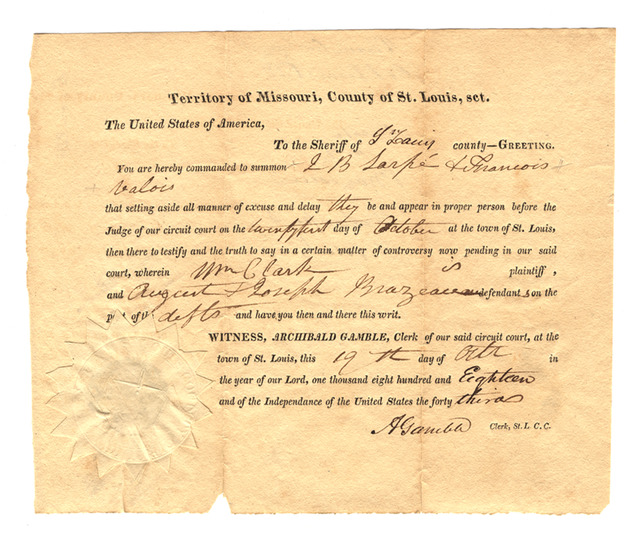 Territory of Missouri, County of St. Louis, sct.
The United States of America,
To the Sheriff of St Louis county—GREETING.
You are hereby commanded to summon J B Sarpé & Francois
Valois
that setting aside all manner of excuse and delay they be and appear in proper person before the
Judge of our circuit court on the twenty first day of October at the town of St. Louis,
then there to testify and the truth to say in a certain matter of controversy now pending in our said
court, wherein Wm Clark is plaintiff,
and August & Joseph Brazeau defendants on the
part of the defts and have you then and there this writ.
WITNESS, ARCHIBALD GAMBLE, Clerk of our said circuit court, at the
town of St. Louis, this 19th day of Octr in
the year of our Lord, one thousand eight hundred and Eighteen
and of the Independance of the United States the forty third
A Gamble Clerk, St. L. C. C.